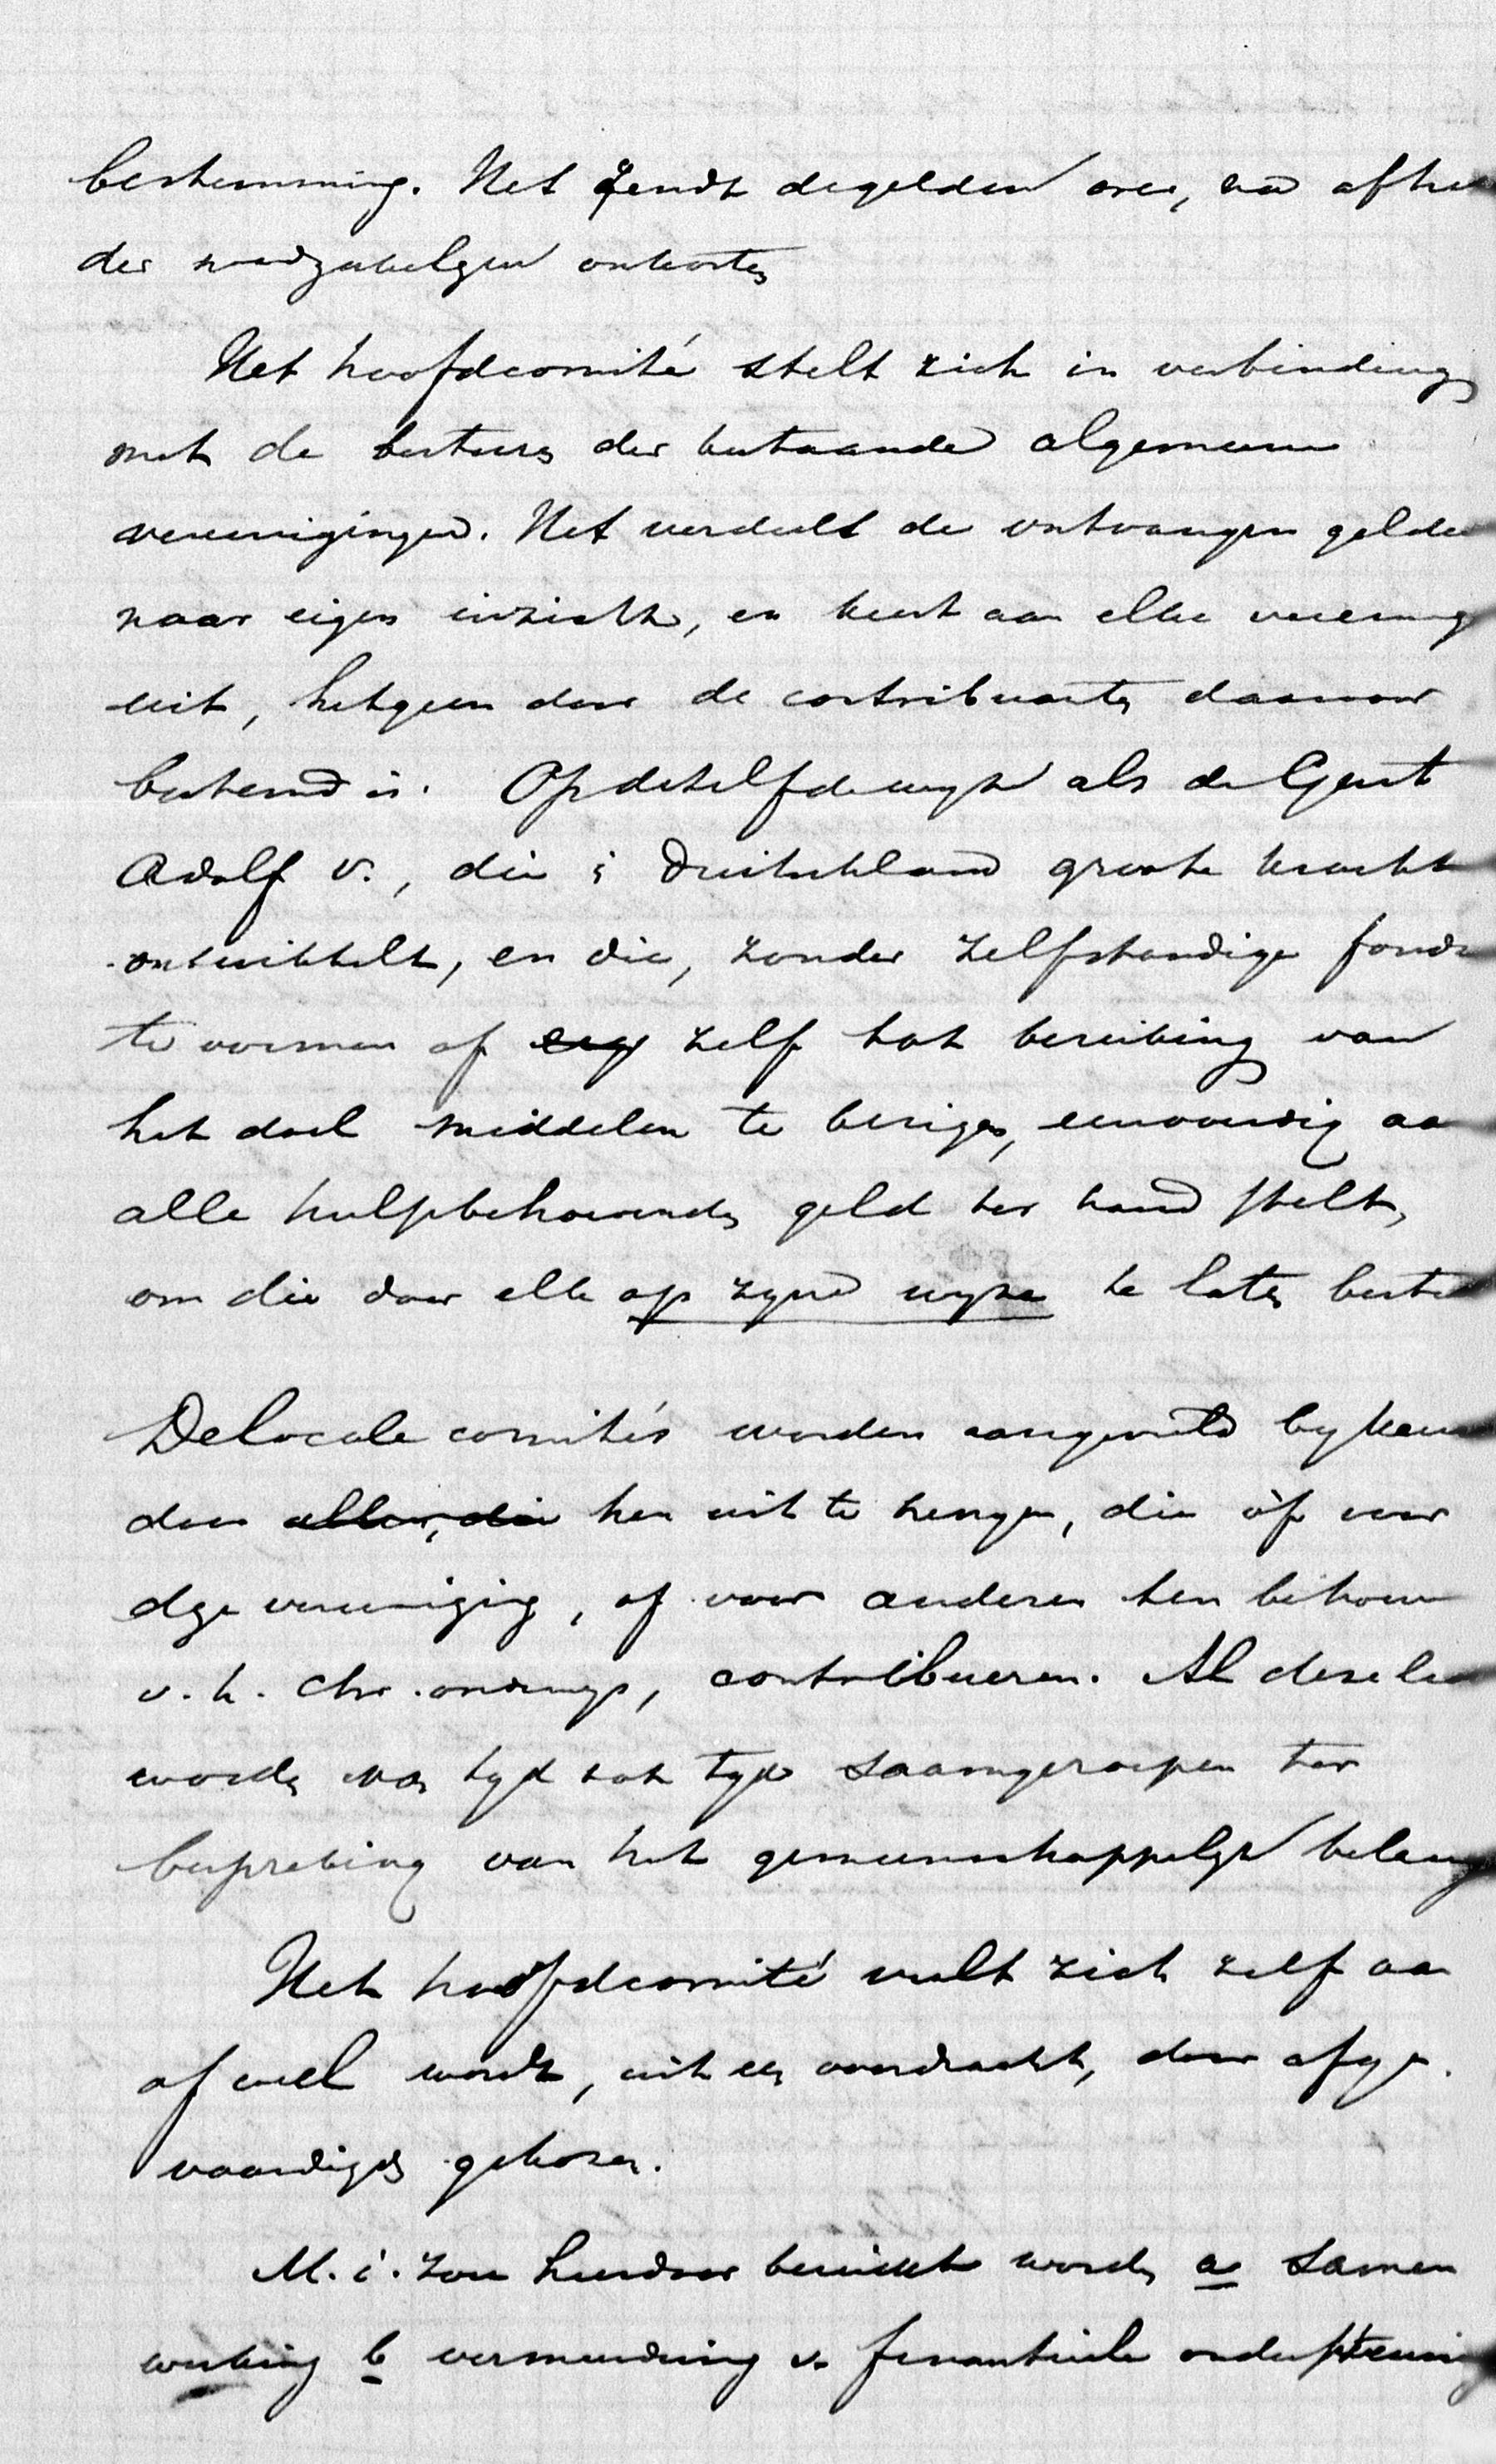 bestemming. Het zendt degelden over, na aftrek
der noodzakelyken onkosten
Het hoofdcomité stelt zich in verbinding
met de besturen der bestaande algemeene
vereenigingen. Het verdeelt de ontvangen gelden
naar eigen inzicht, en keert aan elke vereenig
uit, hetgeen door de contribuanten daarvoor
bestemd is. Op dezelfde wyze als de Gust
Adolf V., die i Duitschland groote kracht
ontwikkelt, en die, zonder zelfstandige fonds
te vormen of eig zelf tot bereiking van
het doel middelen te bezigen, eenvoudig aan
alle hulpbehoevenden geld ter hand stelt,
om die door elk op zyne wyze te laten best
De locale comités worden aangevuld by keuze
door allen, die hen uit te brengen, die òf voor
dge vereeniging, of voor anderen ten behoeve
v. h. Chr. onderwys, contribueeren. Al deze le
worden van tyd tot tyd saamgeroepen ter
bespreking van het gemeenschappelyk belang
Het hoofdcomité vult zich zelf aan
of wel wordt, uit een voordracht, door afge-
vaardigden gekozen.
M. i. zou hierdoor bereikt worden a samen
werking b vermeerdering v. financiëele ondersteuning